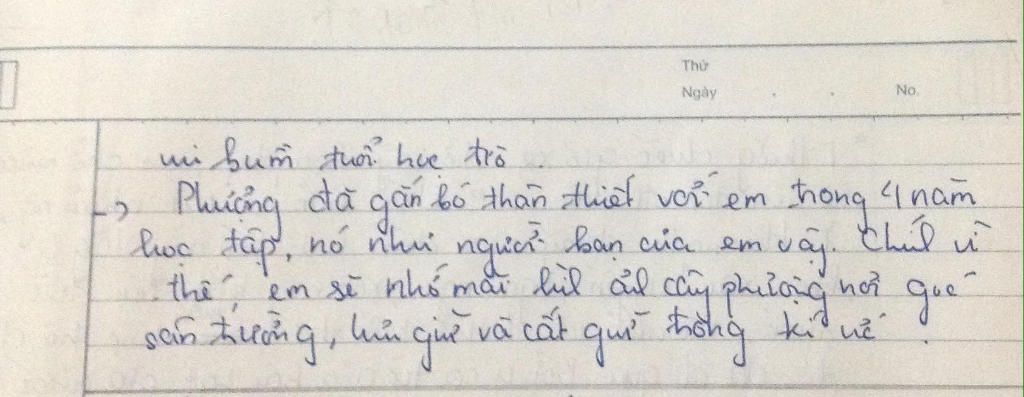 Thứ
Ngày . . No.
tuổi học trò
-> Phượng đã gắn bó thân thiết với em trong 4 năm
học tập, nó như người bạn của em vậy. Chúl vì
thế, em sẽ nhớ mãi cây phượng nơi góc
sân trường, lưu giữ và cất giữ trong kí ức.